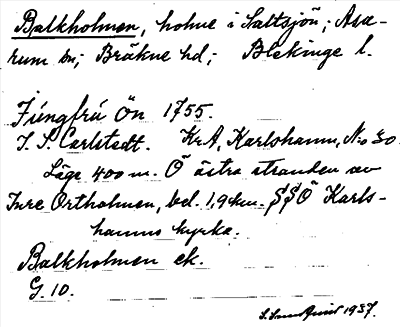 Balkholmen, holme i Saltsjön; Asa-
rum sn; Bräkne hd; Blekinge l.
Jungfrú Ön 1755.
J. S. Carlstedt. KrA, Karlshamn, No 30.
Läge 400 m. Ö östra stranden av
Inre Ortholmen, bel. 1,9 km. SSÖ Karls-
hamns kyrka.
Balkholmen ek.
G. 10.
S. Sundquist 1937.